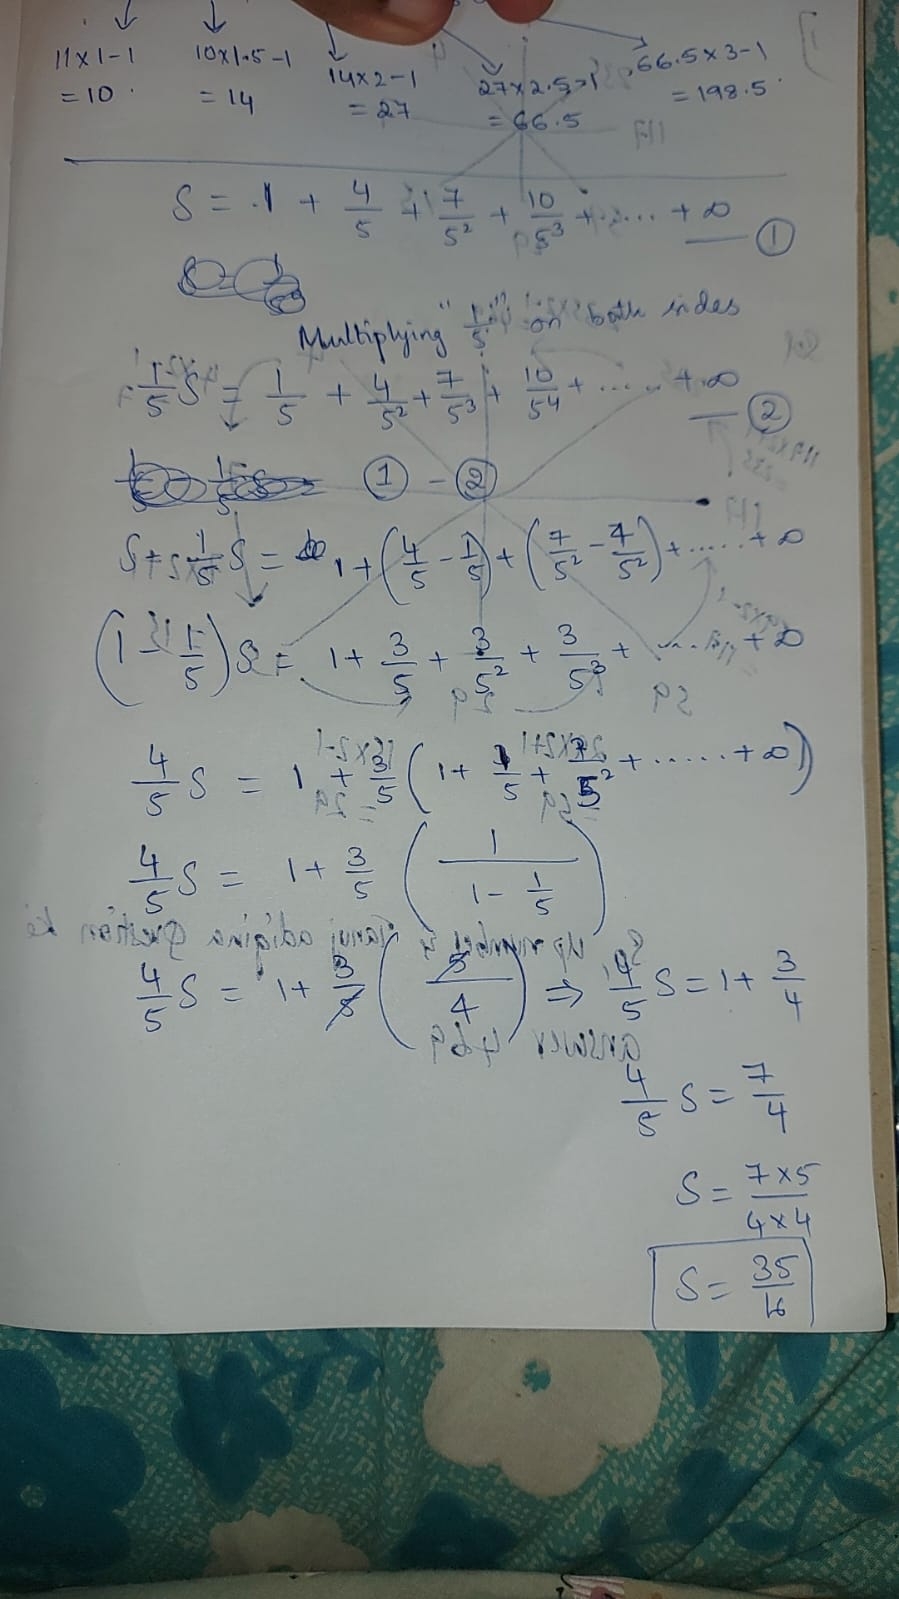 11×1-1 10×1.5-1 14×2-1 27×2.5-1 66.5×3-1
=10 =14 =27 =66.5 =198.5
S = 1 + 4/5 + 7/5² + 10/5³ + ..... + ∞ — ①
Multiplying "1/5" on both sides
1/5 S = 1/5 + 4/5² + 7/5³ + 10/5⁴ + ...... + ∞ — ②
① - ②
S + 1/5 S = 1 + (4/5 - 1/5) + (7/5² - 4/5²) + ...... + ∞
(1 - 1/5) S = 1 + 3/5 + 3/5² + 3/5³ + ...... + ∞
4/5 S = 1 + 3/5 (1 + 1/5 + 1/5² + ...... + ∞)
4/5 S = 1 + 3/5 (1/(1 - 1/5))
4/5 S = 1 + 3/5 (5/4) ⇒ 4/5 S = 1 + 3/4
4/5 S = 7/4
S = 7×5/4×4
S = 35/16